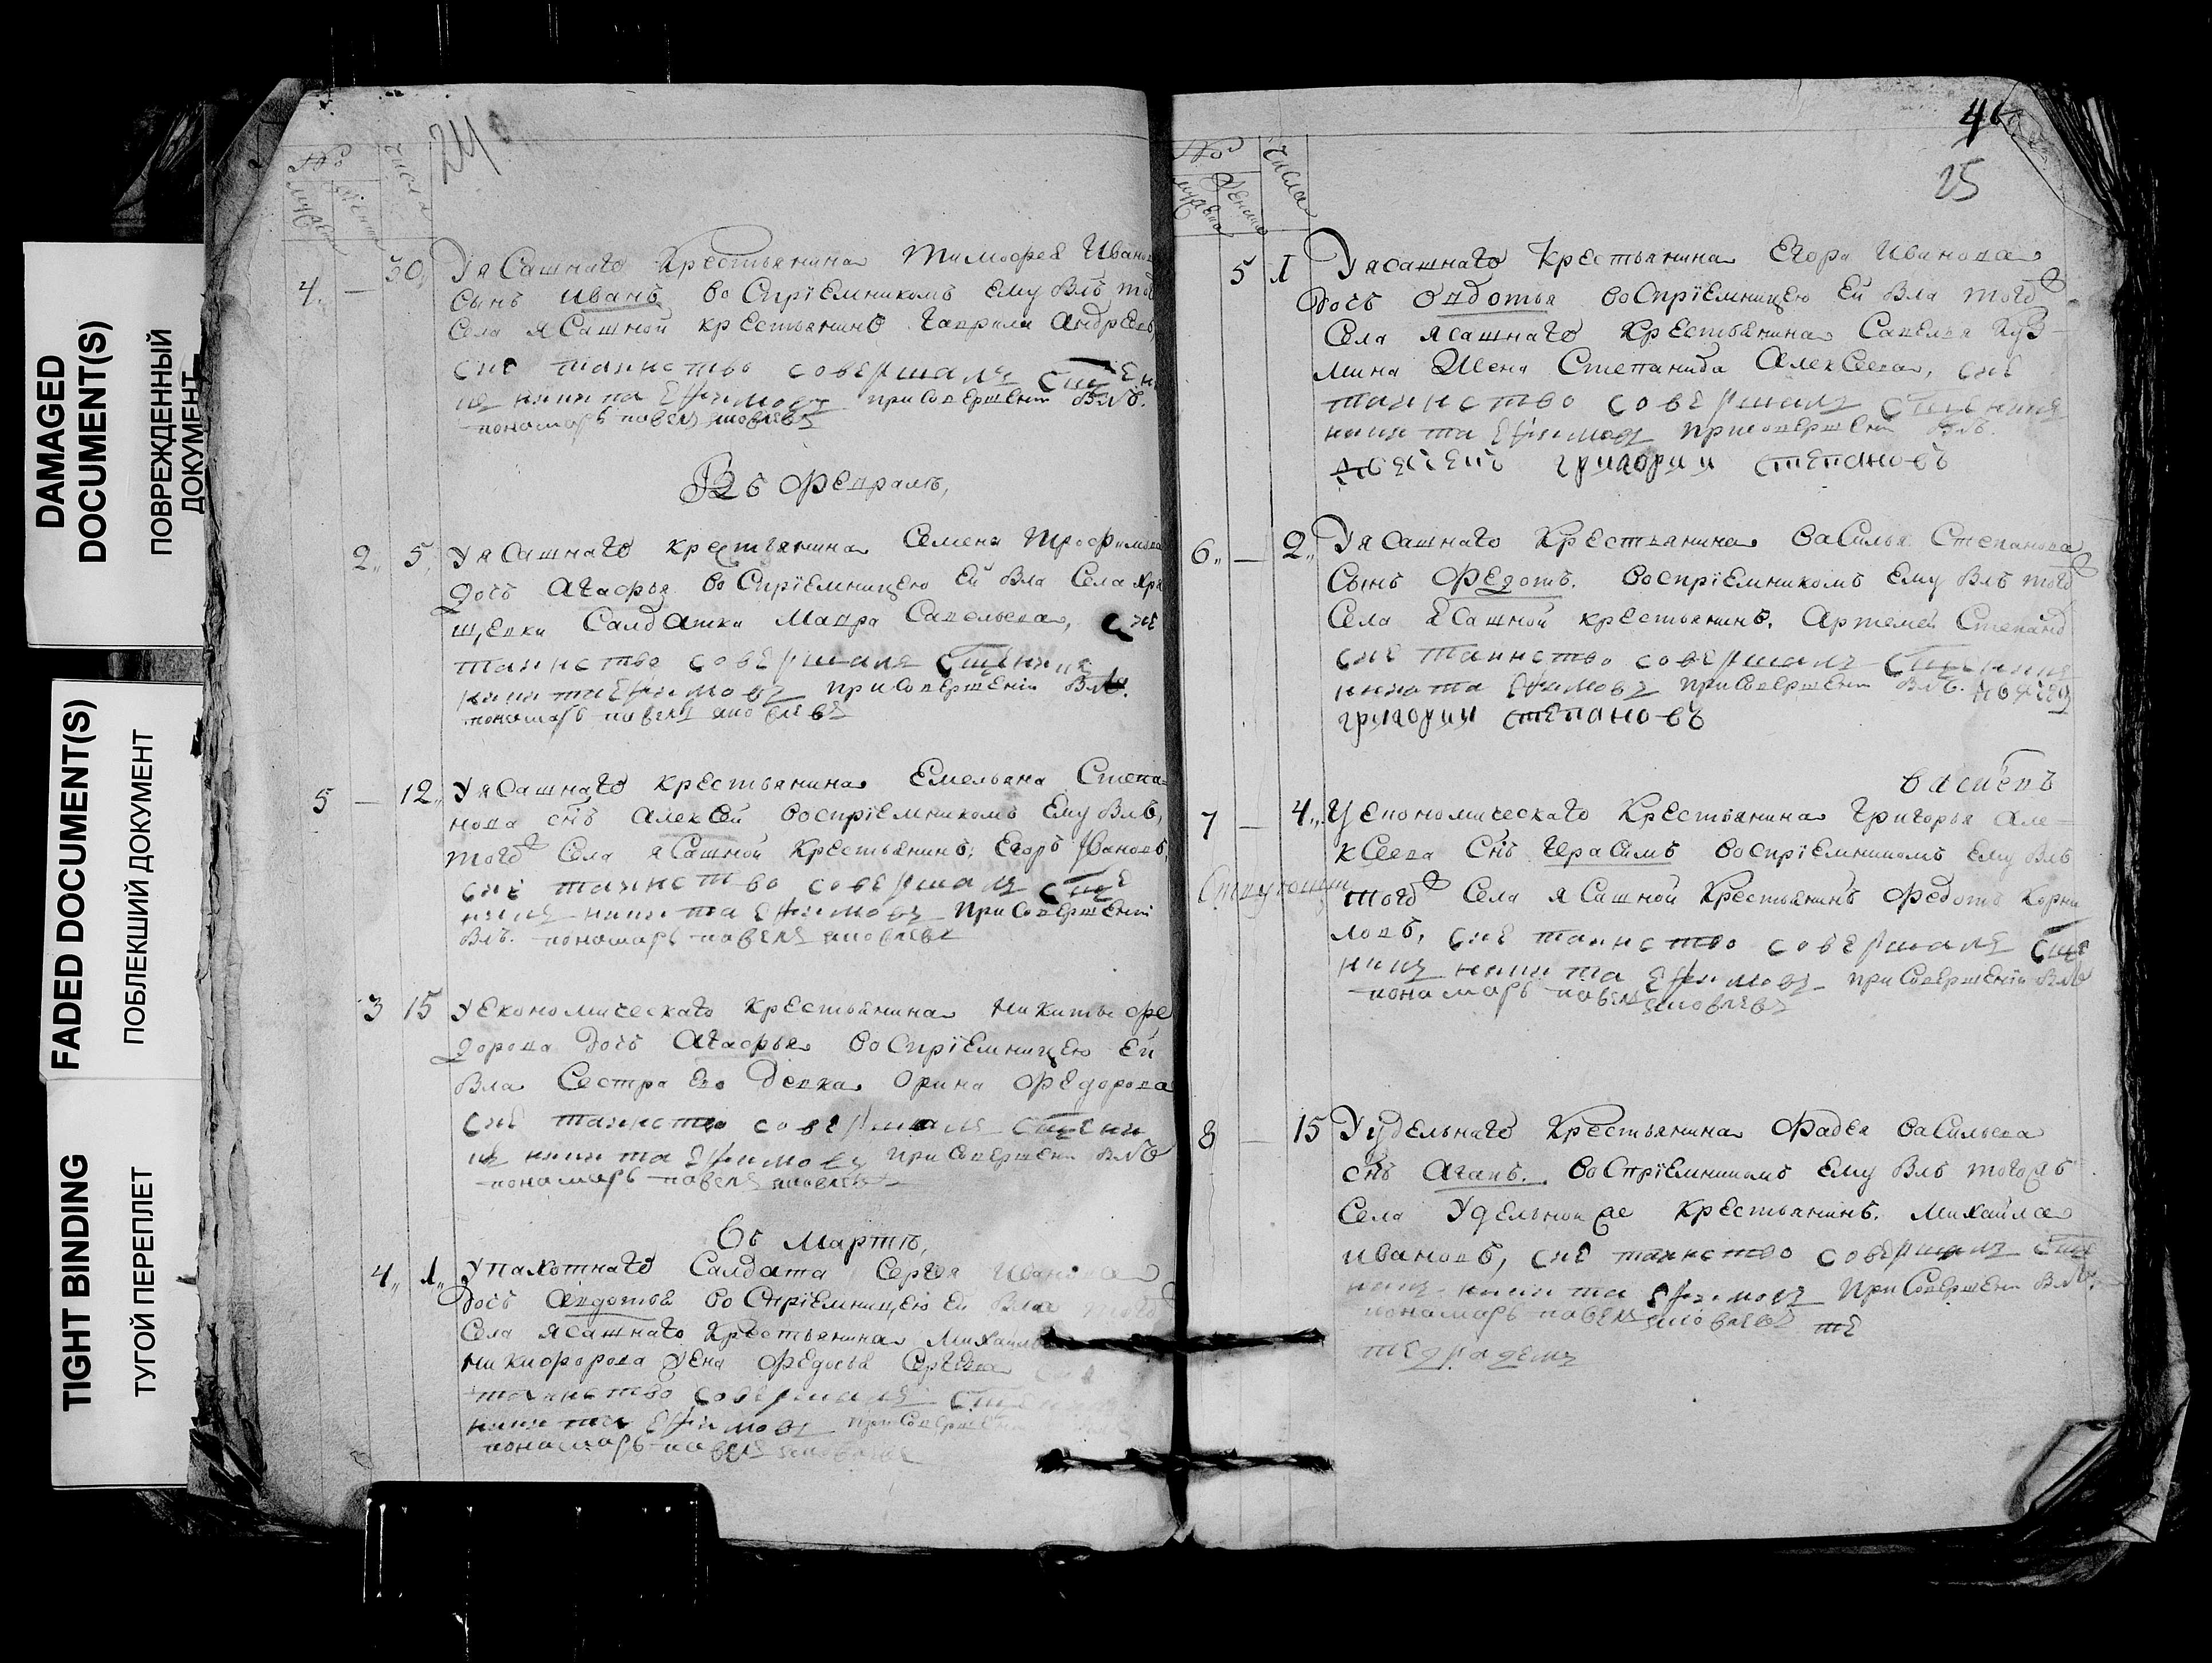 DAMAGED
DOCUMENT(S)
ПОВРЕЖДЕННЫЙ
ДОКУМЕНТ
FADED DOCUMENT(S)
ПОБЛЕКШИЙ ДОКУМЕНТ
TIGHT BINDING
ТУГОЙ ПЕРЕПЛЕТ
24
№ числа
4. — 30, У ясашнаго Крестьянина Тимофея Ивано
сынъ иванъ воспріемникомъ ему былъ того
села ясашной крестьянинъ Гаврила андреевъ,
сие таинство совершалъ сщен
никита Ефимовъ при совершеніи былъ.
пономарь павелъ яковлевъ
Въ Февралѣ,
2. 5. У ясашнаго крестьянина Семена Трофимова
дочь агафья воспріемницею ей была села Хря
щевки салдатки Мавра Савельева, сие
таинство совершалъ сщенникъ
никита Ефимовъ при совершеніи былъ.
пономарь павелъ яковлевъ
5 — 12. У ясашнаго крестьянина Емельяна Степа-
нова снъ алексей воспріемникомъ ему былъ,
того села ясашной крестьянинъ: Егоръ Ивановъ,
сие таинство совершалъ сще
никъ никита Ефимовъ при совершеніи
былъ. пономарь павелъ яковлевъ
3 15 У економическаго крестьянина никиты фе
дорова дочь агафья воспріемницею ей
была сестра ево девка орина федорова
сие таинство совершалъ сщенни
къ никита Ефимовъ при совершени былъ
пономарь павелъ яковлевъ
Въ Мартѣ,
4. 1. У пахотнаго салдата Сергея Иванова
дочь авдотья воспріемницею ей была того
села ясашнаго крестьянина Михаила
никифорова жена федосья Сергеева сие
таинство совершалъ
никита Ефимовъ при совершени
пономарь павелъ яковлевъ
4
25
№ числа
5 1 У ясашнаго крестьянина Егора Иванова
дочь овдотья воспріемницею ей была того
села ясашнаго крестьянина Савелья Куз-
мина жена Степанида алексеева, сие
таинство совершалъ сщенникъ
никита Ефимовъ при совершени былъ.
григории степановъ
6. — 2. У ясашнаго крестьянина Василья Степанова
сынъ Федотъ. воспріемникомъ ему былъ того
села ясашной крестьянинъ. Артемей Степано
сие таинство совершалъ сщенникъ
никита Ефимовъ при совершени былъ.
григории степановъ
7 — 4. У економическаго крестьянина григорья але-
ксеева снъ герасимъ воспріемникомъ ему былъ
того села ясашной крестьянинъ федотъ корни
ловъ, сие таинство совершалъ сще
никъ никита Ефимовъ при совершеніи былъ
пономарь павелъ яковлевъ
8 — 15 У удельнаго крестьянина Фадея Васильева
снъ агапъ. воспріемникомъ ему былъ тогожъ
села удельной крестьянинъ. Михайла
ивановъ, сие таинство совершалъ сще
никъ никита Ефимовъ при совершени былъ.
пономарь павелъ яковлевъ